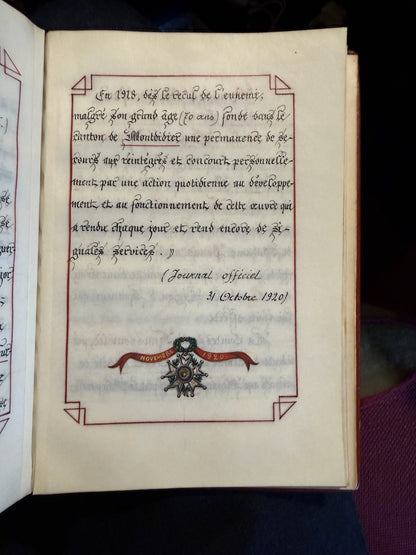 En 1918, dès le recul de l'ennemi,
malgré son grand âge (70 ans) fonde dans le
canton de Montdidier une permanence de se-
cours aux réintégrés et concourt personnelle-
ment par une action quotidienne au développe-
ment et au fonctionnement de cette œuvre qui
a rendu chaque jour et rend encore de si-
gnalés services. »
(Journal officiel
31 Octobre 1920)
NOVEMBRE 1920